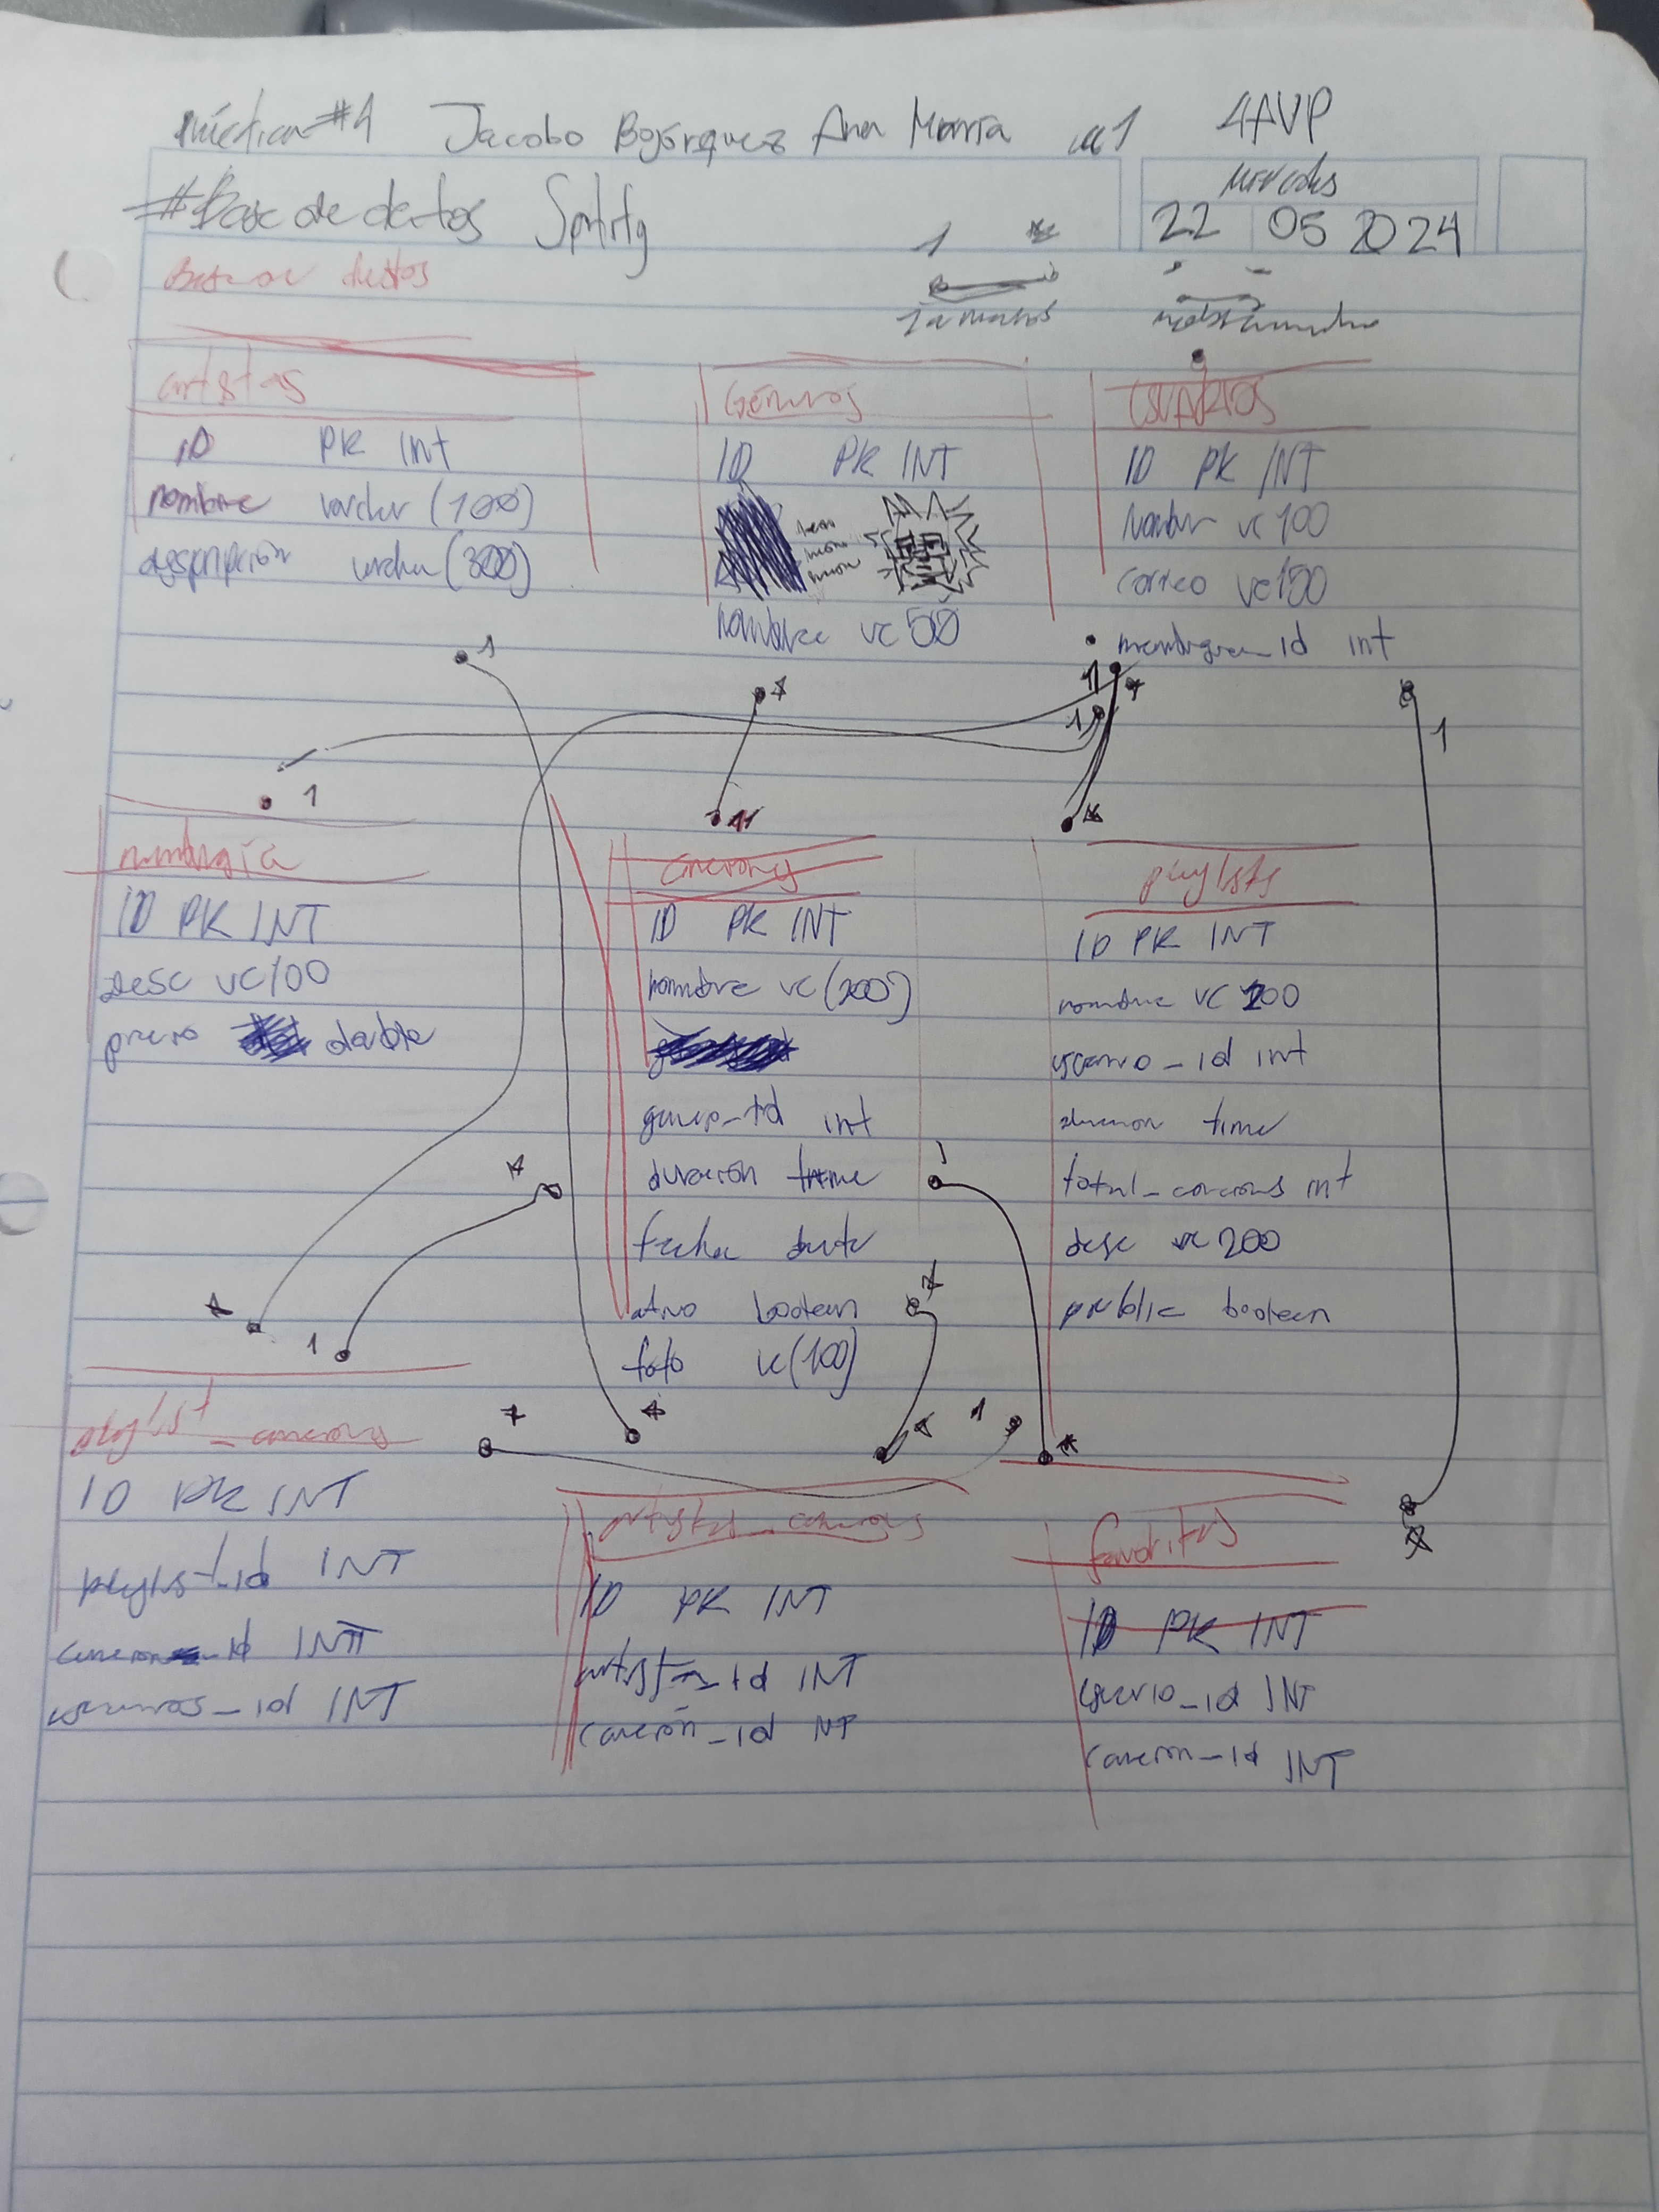 Práctica #4 Jacobo Bojórquez Ana María 4AVP
# Base de datos Spotify
Miércoles
22 05 2024
1 *
Base de datos
1 a muchos
artistas
ID PK Int
nombre varchar (100)
descripción varchar (300)
Géneros
ID PK INT
nombre vc 50
USUARIOS
ID PK INT
Nombre vc 100
correo vc 150
membresia_id int
1
*
1
*
1
1
1
1
*
membresía
ID PK INT
Desc vc 100
precio double
canciones
ID PK INT
nombre vc (200)
genero_id int
duración time
fecha date
activo boolean
foto vc (100)
playlists
ID PK INT
nombre vc 200
usuario_id int
duracion time
total_canciones int
desc vc 200
public boolean
*
1
*
1
*
*
*
*
1
*
*
playlist_canciones
ID PK INT
playlist_id INT
cancion_id INT
usuarios_id INT
artistas_canciones
ID PK INT
artistas_id INT
canción_id INT
favoritas
ID PK INT
usuario_id INT
canción_id INT